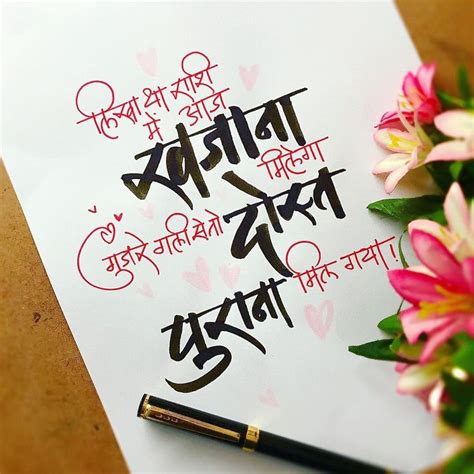 लिखा था राशि
में आज
खजाना मिलेगा
गुजरे गली से तो दोस्त
पुराना मिल गया!